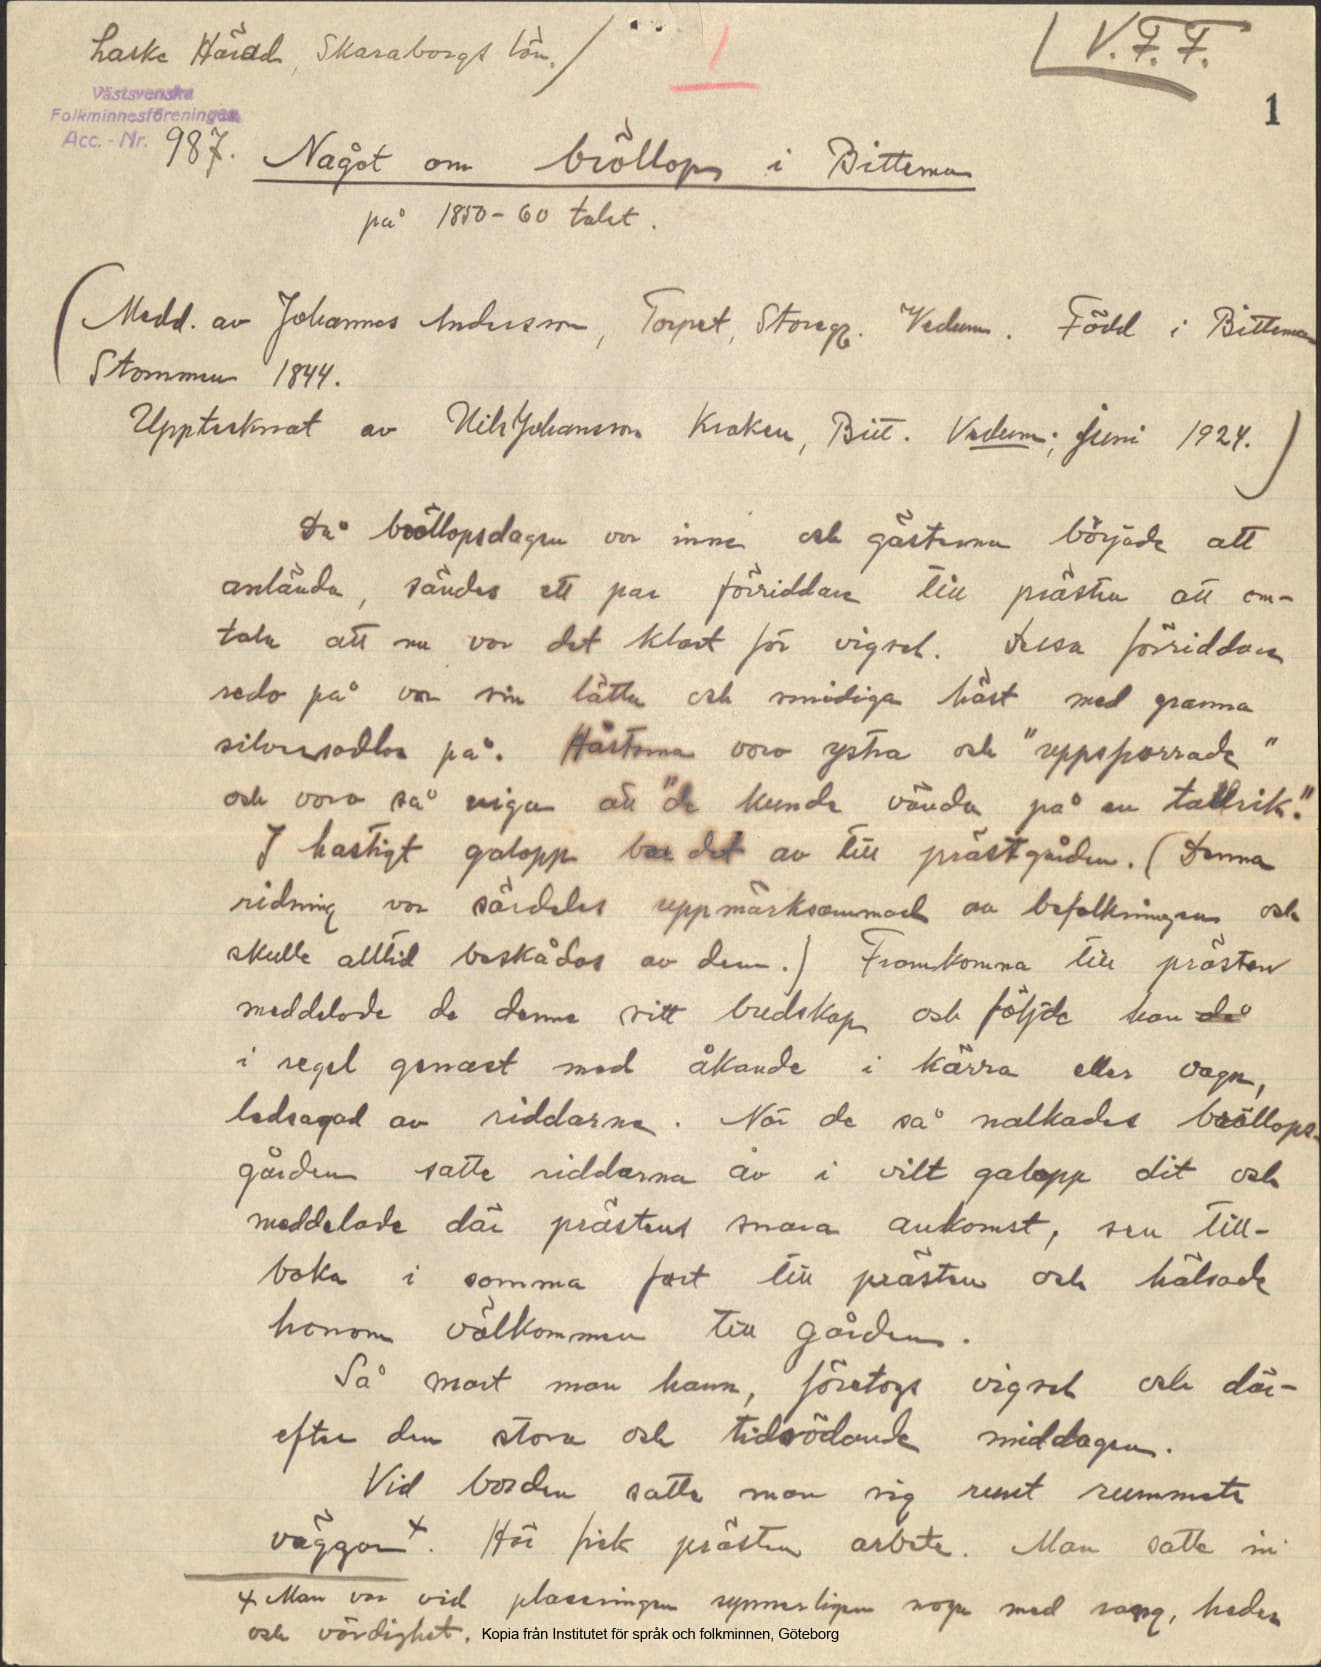 Laske Härad, Skaraborgs län.
V.F.F.
1
Västsvenska
Folkminnesföreningen
Acc.-Nr. 987.
Något om bröllop i Bitterna
på 1850-60 talet.
(Medd. av Johannes Andersson, Torpet, Storegn. Vedum. Född i Bitterna
Stommen 1844.
Upptecknat av Nils Johansson Kraken, Bitt. Vedum; juni 1924.)
Då bröllopsdagen var inne och gästerna började att
anlända, sändes ett par förriddare till prästen att om-
tala att nu var det klart för vigsel. Dessa förriddare
redo på var sin lätta och smidiga häst med granna
silversadlar på. Hästarna voro ystra och "uppsparrade"
och voro så viga att "de kunde vända på en tallrik".
I hastigt galopp bar det av till prästgården. (Denna
ridning var särdeles uppmärksammad av befolkningen och
skulle alltid beskådas av dem.) Framkomna till prästen
meddelade de denne sitt budskap och följde han då
i regel genast med åkande i kärra eller vagn,
ledsagad av riddarna. När de så nalkades bröllops-
gården satte riddarna av i vilt galopp dit och
meddelade där prästens snara ankomst, sen till-
baka i samma fart till prästen och hälsade
honom välkommen till gården.
Så snart man hann, företogs vigsel och där-
efter den stora och tidsödande middagen.
Vid borden satte man sig runt rummets
väggar x. Här fick prästen arbete. Man satte in
x Man var vid placeringen synnerligen noga med rang, heder
och värdighet.
Kopia från Institutet för språk och folkminnen, Göteborg